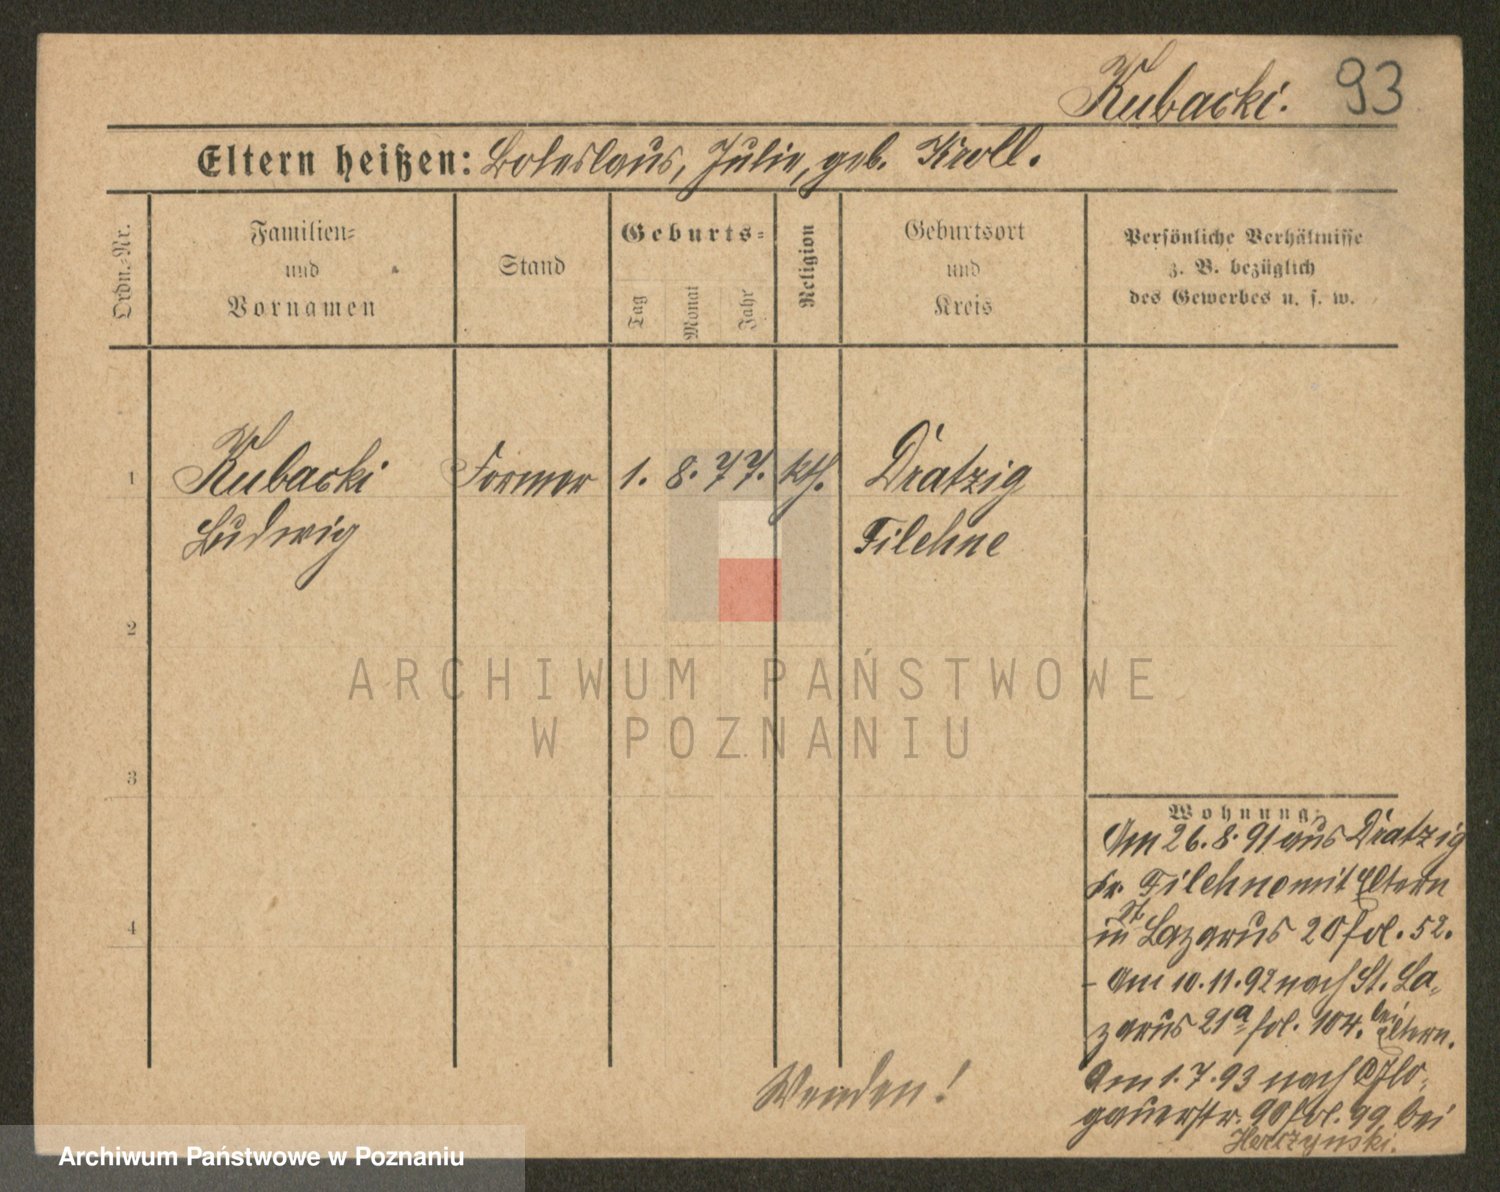 Kubacki. 93
Eltern heißen: Boleslaus, Julie, geb. Kroll.
Ordn.-Nr.
Familien-
und
Vornamen
Stand
Geburts-
Tag
Monat
Jahr
Religion
Geburtsort
und
Kreis
Persönliche Verhältnisse
z. B. bezüglich
des Gewerbes u. s. w.
1 Kubacki Former 1. 8. 77. kth. Dratzig
Ludwig Filehne
2
3
4
Wohnung:
Am 26.8.91 aus Dratzig
Kr. Filehne mit Eltern
in St. Lazarus 20 fol. 52.
- Am 10.11.92 nach St. La-
zarus 21a fol. 104. bei Eltern.
Am 1.7.93 nach Glo-
gauerstr. 90 fol. 99, bei
Wenden!
ARCHIWUM PAŃSTWOWE
W POZNANIU
Archiwum Państwowe w Poznaniu